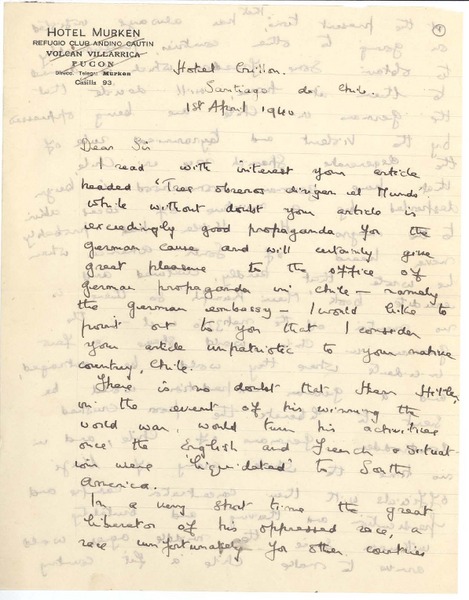 HOTEL MURKEN
REFUGIO CLUB ANDINO CAUTIN
VOLCAN VILLARRICA
PUCON
Direcc. Telegr: Murken
Casilla 93
Hotel Crillon.
Santiago de Chile.
1st April 1940
Dear Sir
I read with interest your article
headed "Tres obreros dirigen el Mundo
While without doubt your article is
exceedingly good propaganda for the
German cause and will certainly give
great pleasure to the office of
German propaganda in Chile - namely
the German embassy - I would like to
point out to you that I consider
your article unpatriotic to your native
country, Chile.
There is no doubt that Herr Hitler,
in the event of his winning the
world war, would turn his activities
once the English and French situat-
ion were "liquidated" to South
America.
In a very short time the great
liberator of his oppressed race, a
race unfortunately for other countries